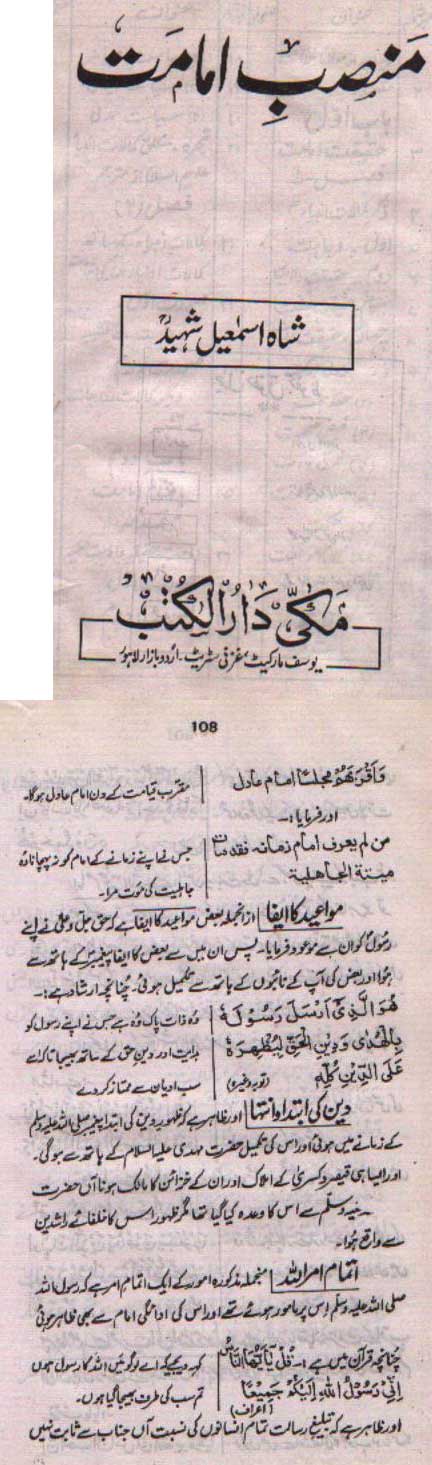 منصبِ امامت
شاہ اسمٰعیل شہیدؒ
مکّی دارُالکتب
یوسف مارکیٹ، غزنی سٹریٹ - اُردو بازار لاہور
108
وَاَقْرَبُهُمْ مجلسًا امام عادل
مقرب قیامت کے دن امام عادل ہوگا۔
اور فرمایا :۔
من لم یعرف امام زمانہ فقد مات
جس نے اپنے زمانے کے امام کو نہ پہچانا وہ
میتۃ الجاھلیۃ
جاہلیت کی موت مرا۔
مواعید کا ایفا ازانجملہ بعض مواعید کا ایفا ہے کہ حق جل وعلیٰ نے اپنے
رسولؐ کو ان سے موعود فرمایا۔ پس ان میں سے بعض کا ایفا پیغمبرؐ کے ہاتھ سے
ہوا اور بعض کی آپ کے نائبوں کے ہاتھ سے تکمیل ہوئی۔ چنانچہ ارشاد ہے :۔
هُوَ الَّذِیْ اَرْسَلَ رَسُوْلَهٗ
وہ ذات پاک وہ ہے جس نے اپنے رسول کو
بِالْهُدٰی وَدِیْنِ الْحَقِّ لِیُظْهِرَهٗ
ہدایت اور دین حق کے ساتھ بھیجا تاکہ اسے
عَلَی الدِّیْنِ کُلِّهٖ (توبہ وغیرہ)
سب ادیان سے ممتاز کر دے
دین کی ابتدا وانتہا اور ظاہر ہے کہ ظہور دین کی ابتدا پیغمبر صلی اللہ علیہ وسلم
کے زمانے میں ہوئی اور اس کی تکمیل حضرت مہدی علیہ السلام کے ہاتھ سے ہوگی۔
اور ایسا ہی قیصر وکسریٰ کے املاک اور ان کے خزائن کا مالک ہونا آں حضرت
وسلم سے اس کا وعدہ کیا گیا تھا مگر ظہور اس کا خلفائے راشدین
سے واقع ہوا۔
اتمام امر اللہ منجملہ مذکورہ امور کے ایک اتمام امر ہے کہ رسول اللہ
صلی اللہ علیہ وسلم اس پر مامور ہوئے تھے اور اس کی ادائگی امام سے بھی ظاہر ہوئی
چنانچہ قرآن میں ہے :۔ قُلْ یٰۤاَیُّهَا النَّاسُ
کہہ دیجیے کہ اے لوگو میں اللہ کا رسول ہوں
اِنِّیْ رَسُوْلُ اللهِ اِلَیْکُمْ جَمِیْعًا (اعراف)
تم سب کی طرف بھیجا گیا ہوں۔
اور ظاہر ہے کہ تبلیغ رسالت تمام انسانوں کی نسبت آں جناب سے ثابت نہیں